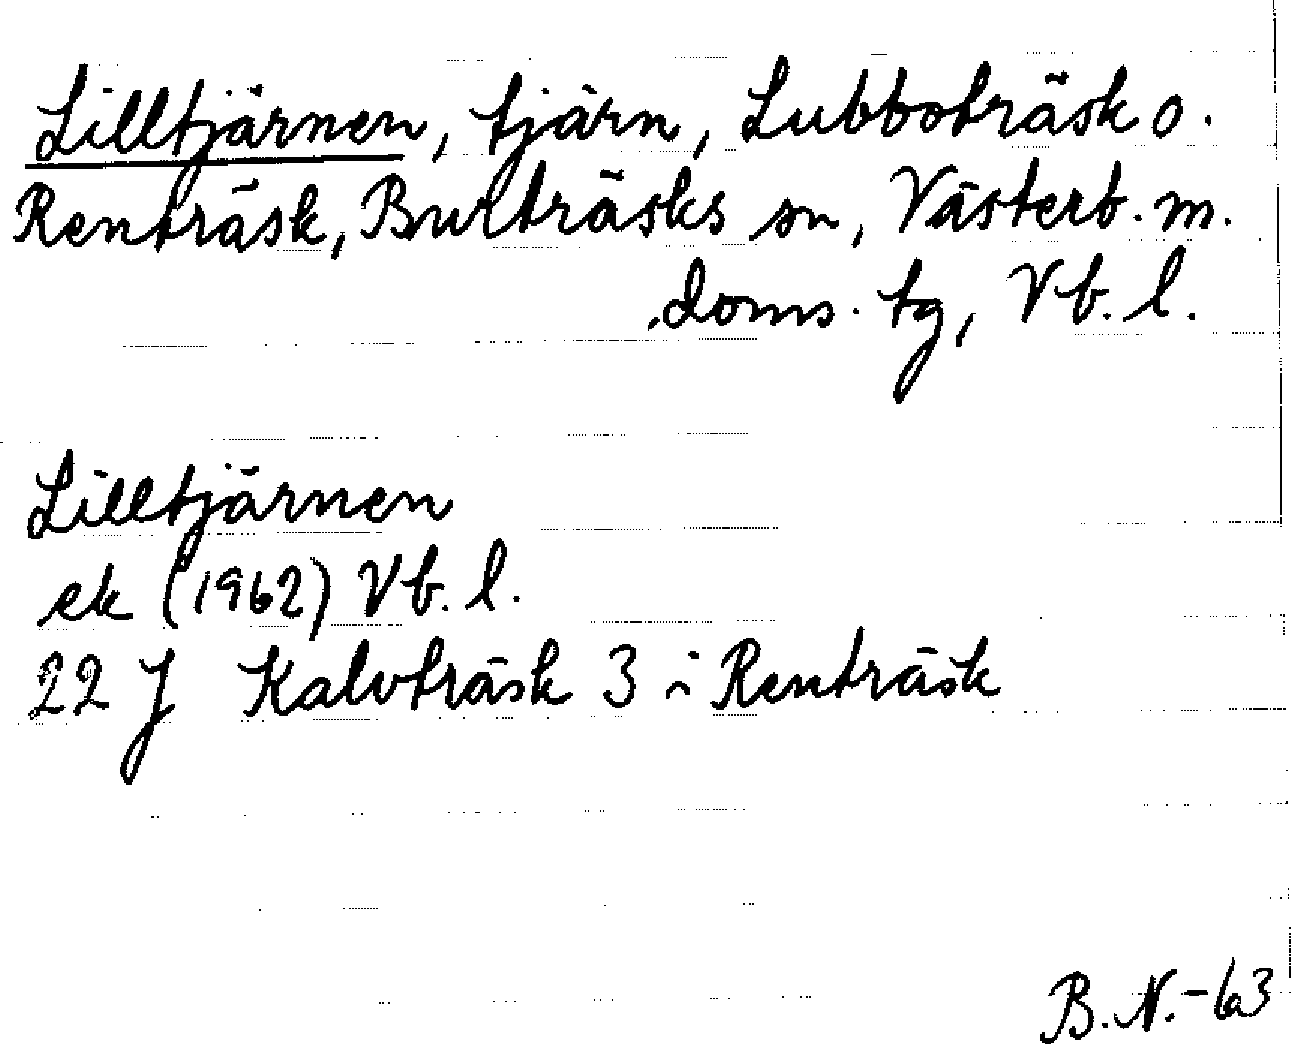 Lilltjärnen, tjärn, Lubboträsk o.
Renträsk, Burträsks sn, Västerb. m.
doms. tg, Vb. l.
Lilltjärnen
ek (1962) Vb. l.
22 J Kalvträsk 3 i Renträsk
B. N. -63